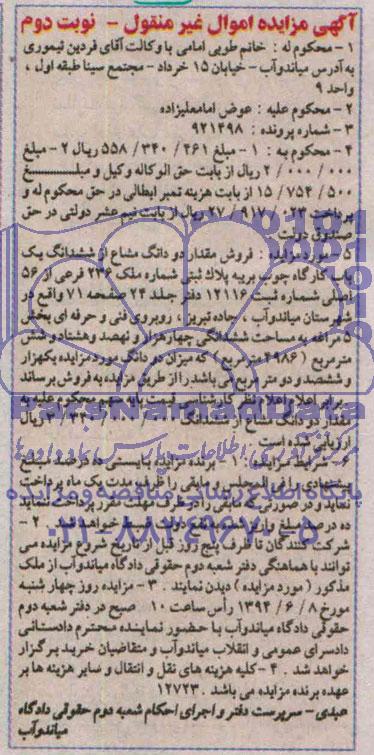 آگهی مزایده اموال غیر منقول - نوبت دوم
۱ - محکوم له : خانم طوبی امامی با وکالت آقای فردین تیموری
به آدرس میاندوآب - خیابان ۱۵ خرداد - مجتمع سینا طبقه اول ،
واحد ۹
۲ - محکوم علیه : عوض امامعلیزاده
۳ - شماره پرونده : ۹۲۱۴۹۸
۴ - محکوم به : ۱ - مبلغ ۵۵۸/۳۴۰/۴۶۱ ریال ۲ - مبلغ
۲/۰۰۰/۰۰۰ ریال از بابت حق الوکاله وکیل و مبلغ
۱۵/۷۵۴/۵۰۰ از بابت هزینه تمبر ابطالی در حق محکوم له و
پرداخت ۲۷/۹۱۷/۰۲۳ ریال از بابت نیم عشر دولتی در حق
صندوق دولت
۵ - مورد مزایده : فروش مقدار دو دانگ مشاع از ششدانگ یک
باب کارگاه چوب بریه پلاک ثبتی شماره ملک ۲۳۶ فرعی از ۵۶
اصلی شماره ثبت ۱۲۱۱۶ دفتر جلد ۲۴ صفحه ۷۱ واقع در
شهرستان میاندوآب ، جاده تبریز ، روبروی فنی و حرفه ای بخش
۵ مراغه به مساحت ششدانگی چهارهزار و نهصد و هشتاد و شش
مترمربع ( ۴۹۸۶ مترمربع ) که میزان دو دانگ مورد مزایده یکهزار
و ششصد و دو متر مربع می باشد را از طریق مزایده به فروش برساند
برابر اعلام نظر کارشناسی قیمت پایه سهم محکوم علیه به
مقدار دو دانگ مشاع از ششدانگ ریال
ارزیابی شده است
۶ - شرایط مزایده : ۱ - برنده مزایده بایستی ده درصد مبلغ
پیشنهادی را فی المجلس و مابقی را ظرف مدت یک ماه پرداخت
نماید و در صورتی که مابقی را در ظرف مهلت مقرر پرداخت ننماید
ده درصد مبلغ واریزی به نفع دولت ضبط خواهد شد . ۲ -
شرکت کنندگان تا ظرف پنج روز قبل از تاریخ شروع مزایده می
توانند با هماهنگی دفتر شعبه دوم حقوقی دادگاه میاندوآب از ملک
مذکور ( مورد مزایده ) دیدن نمایند . ۳ - مزایده روز چهار شنبه
مورخ ۱۳۹۴/۶/۸ رأس ساعت ۱۰ صبح در دفتر شعبه دوم
حقوقی دادگاه میاندوآب با حضور نماینده محترم دادستانی
دادسرای عمومی و انقلاب میاندوآب و متقاضیان خرید برگزار
خواهد شد . ۴ - کلیه هزینه های نقل و انتقال و سایر هزینه ها بر
عهده برنده مزایده می باشد . ۱۲۷۲۳
عبدی - سرپرست دفتر و اجرای احکام شعبه دوم حقوقی دادگاه
میاندوآب
ParsNamadData
پایگاه اطلاع رسانی مناقصه و مزایده
۰۲۱-۸۸۳۴۹۶۷۰-۵